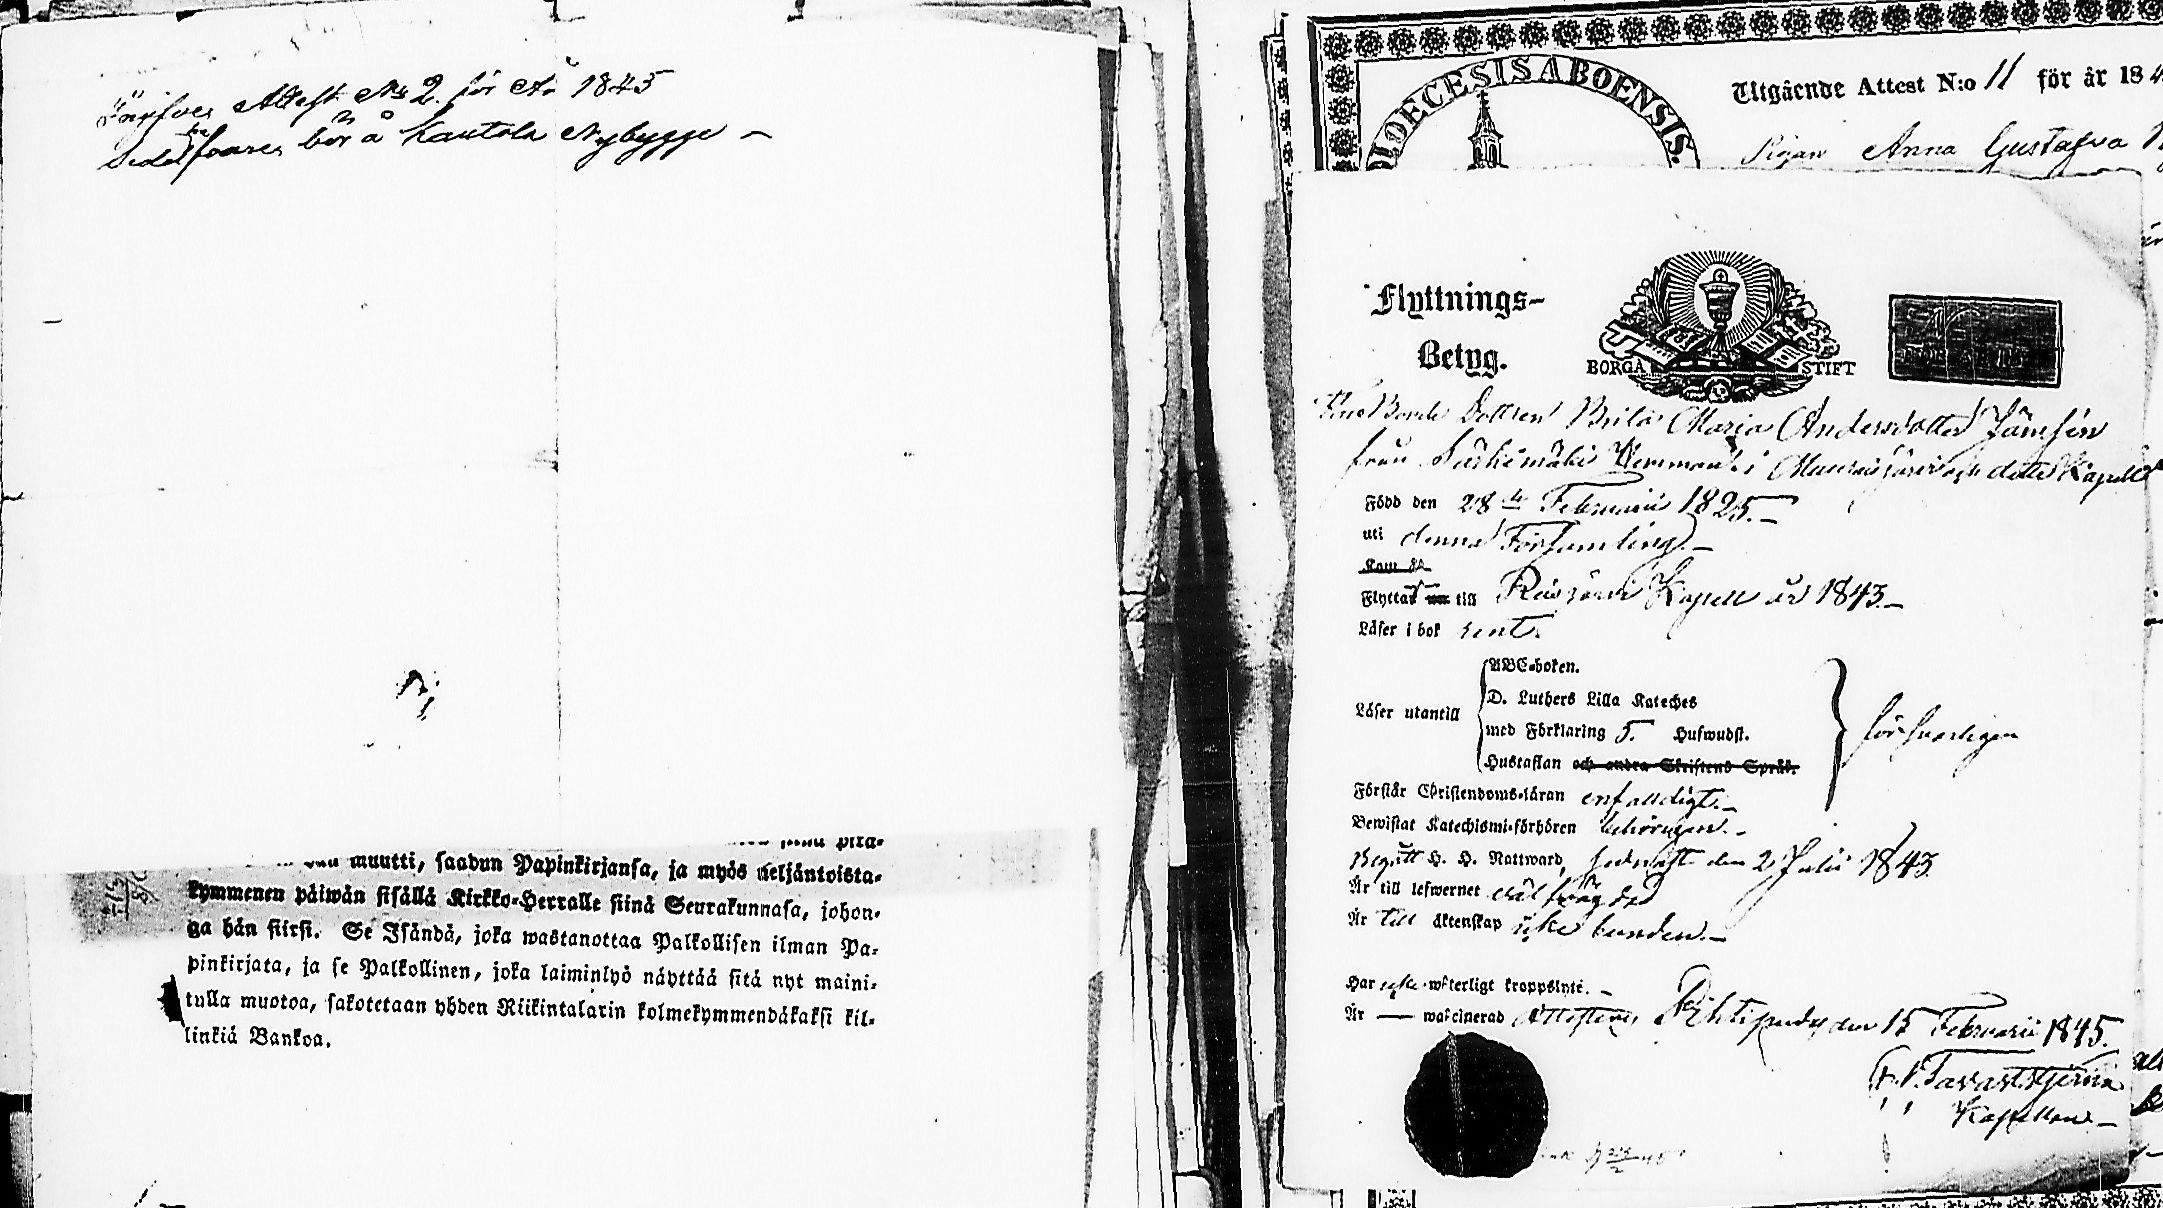 Attest No 2 för År 1845
bör å Kautola Nybygge –
muutti, saadun Papinkirjansa, ja myös neljäntoista-
kymmenen päiwän sisällä Kirkko-Herralle siinä Seurakunnasa, johon-
ga hän siirsi. Se Isändä, joka wastanottaa Palkollisen ilman Pa-
pinkirjata, ja se Palkollinen, joka laiminlyö näyttää sitä nyt maini-
tulla muotoa, sakotetaan yhden Riikintalarin kolmekymmendäkaksi kil-
linkiä Bankoa.
DIOECESIS ABOENSIS.
Utgående Attest N:o 11 för år 184
Pigan Anna Gustafva
Flyttnings-
Betyg.
BORGÅ STIFT
Bonde Dottren Brita Maria Andersdotter Jämsén
från i och detta Kapell
Född den 28de Februarii 1825.–
uti denna Församling.–
Kom
Flyttar till Reisjärvi Kapell år 1843–
Läser i bok rent.
Läser utantill
ABC-boken.
D. Luthers Lilla Kateches
med Förklaring 5. Hufwudst.
Hustaflan och andra Skriftens Språk.
försvarligen
Förstår Christendoms-läran enfalldigt.–
Bewistat Katechismi-förhören behörigen.–
Begått H. H. Nattward, sednast den 2 Julii 1843
Är till lefwernet välfrägdad
Är till äktenskap icke bunden.–
Har icke weterligt kroppslyte.–
Är — waccinerad Attesterar Pihtipudas den 15 Februarii 1845.
Tavaststjerna
Kapellan–